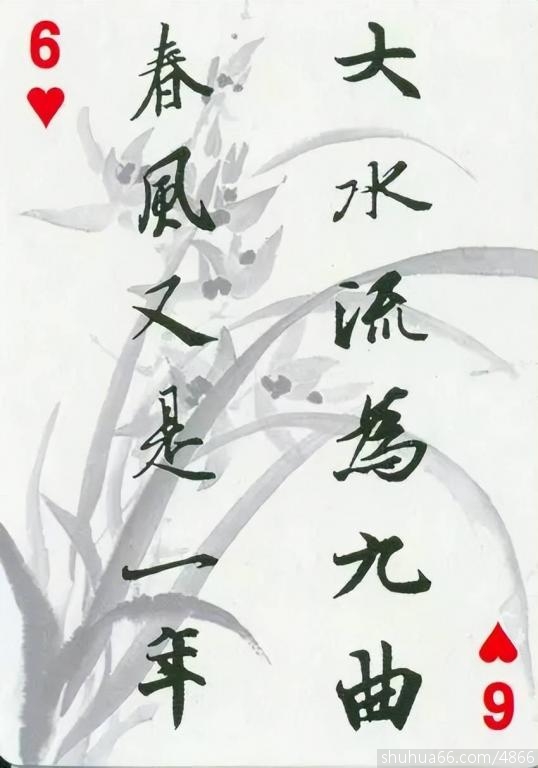 6
大水流為九曲
春風又是一年
6
shuhua66.com/4866